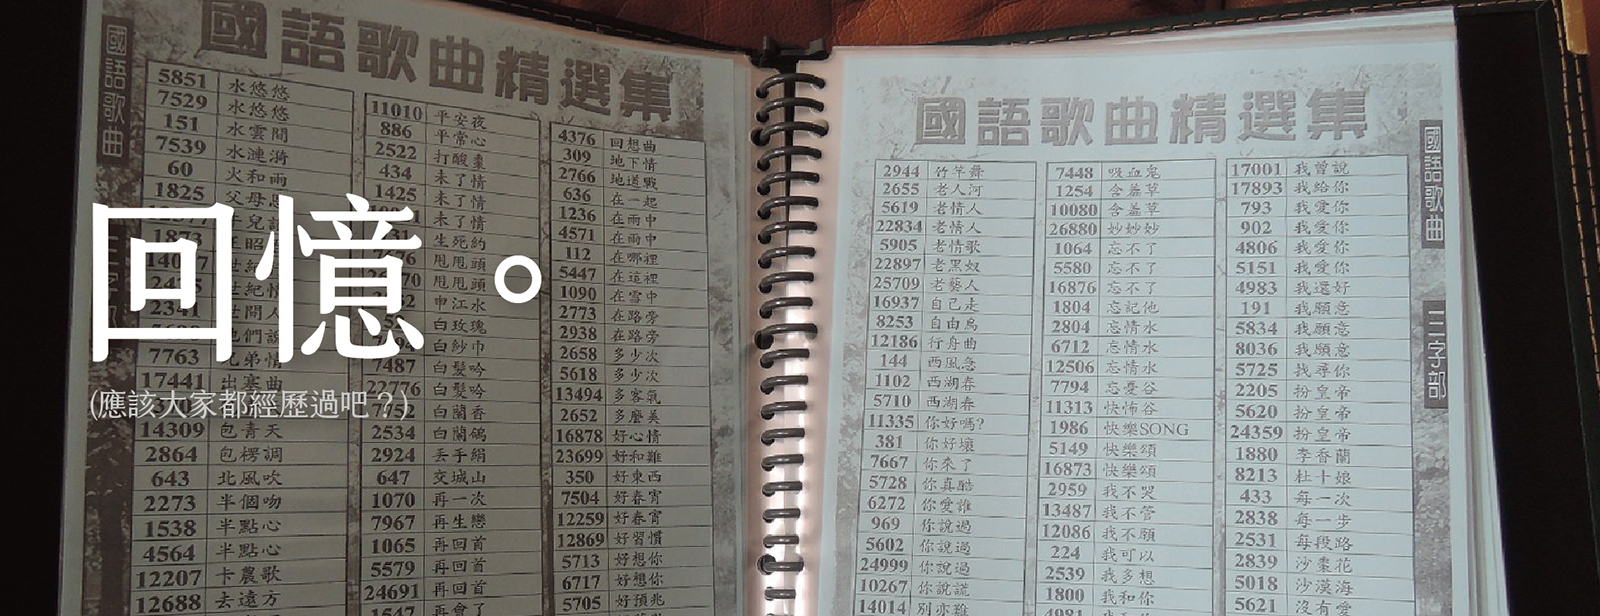 國語歌曲精選集
國語歌曲
5851 水悠悠
7529 水悠悠
151 水雲間
7539 水漣漪
60 火和雨
1825 父母恩
7763 兄弟情
17441 出塞曲
14309 包青天
2864 包楞調
643 北風吹
2273 半個吻
1538 半點心
4564 半點心
12207 卡農歌
12688 去遠方
11010 平安夜
886 平常心
2522 打酸棗
434 未了情
1425 未了情
未了情
生死約
甩甩頭
甩甩頭
申江水
白玫瑰
白紗巾
7487 白髮吟
22776 白髮吟
7752 白蘭香
2534 白蘭鴿
2924 丟手絹
647 交城山
1070 再一次
7967 再生戀
1065 再回首
5579 再回首
24691 再回首
1547 再會了
4376 回想曲
309 地下情
2766 地道戰
636 在一起
1236 在雨中
4571 在雨中
112 在哪裡
5447 在這裡
1090 在雪中
2773 在路旁
2938 在路旁
2658 多少次
5618 多少次
13494 多客氣
2652 多麼美
16878 好心情
23699 好和難
350 好東西
7504 好春宵
12259 好春宵
12869 好習慣
5713 好想你
6717 好想你
5705 好預兆
回憶。
(應該大家都經歷過吧？)
國語歌曲精選集
2944 竹竿舞
2655 老人河
5619 老情人
22834 老情人
5905 老情歌
22897 老黑奴
25709 老藝人
16937 自己走
8253 自由鳥
12186 行舟曲
144 西風急
1102 西湖春
5710 西湖春
11335 你好嗎?
381 你好壞
7667 你來了
5728 你真酷
6272 你愛誰
969 你說過
5602 你說過
24999 你說過
10267 你說謊
14014 別亦難
7448 吸血鬼
1254 含羞草
10080 含羞草
26880 妙妙妙
1064 忘不了
5580 忘不了
16876 忘不了
1804 忘記他
2804 忘情水
6712 忘情水
12506 忘情水
7794 忘憂谷
11313 快怖谷
1986 快樂SONG
5149 快樂頌
16873 快樂頌
2959 我不哭
13487 我不管
12086 我不願
224 我可以
2539 我多想
1800 我和你
4981
17001 我曾說
17893 我給你
793 我愛你
902 我愛你
4806 我愛你
5151 我愛你
4983 我還好
191 我願意
5834 我願意
8036 我願意
5725 我尋你
2205 扮皇帝
5620 扮皇帝
24359 扮皇帝
1880 李香蘭
8213 杜十娘
433 每一次
2838 每一步
2531 每段路
2839 沙棗花
5018 沙漠海
5621 沒有愛
國語歌曲
三字部